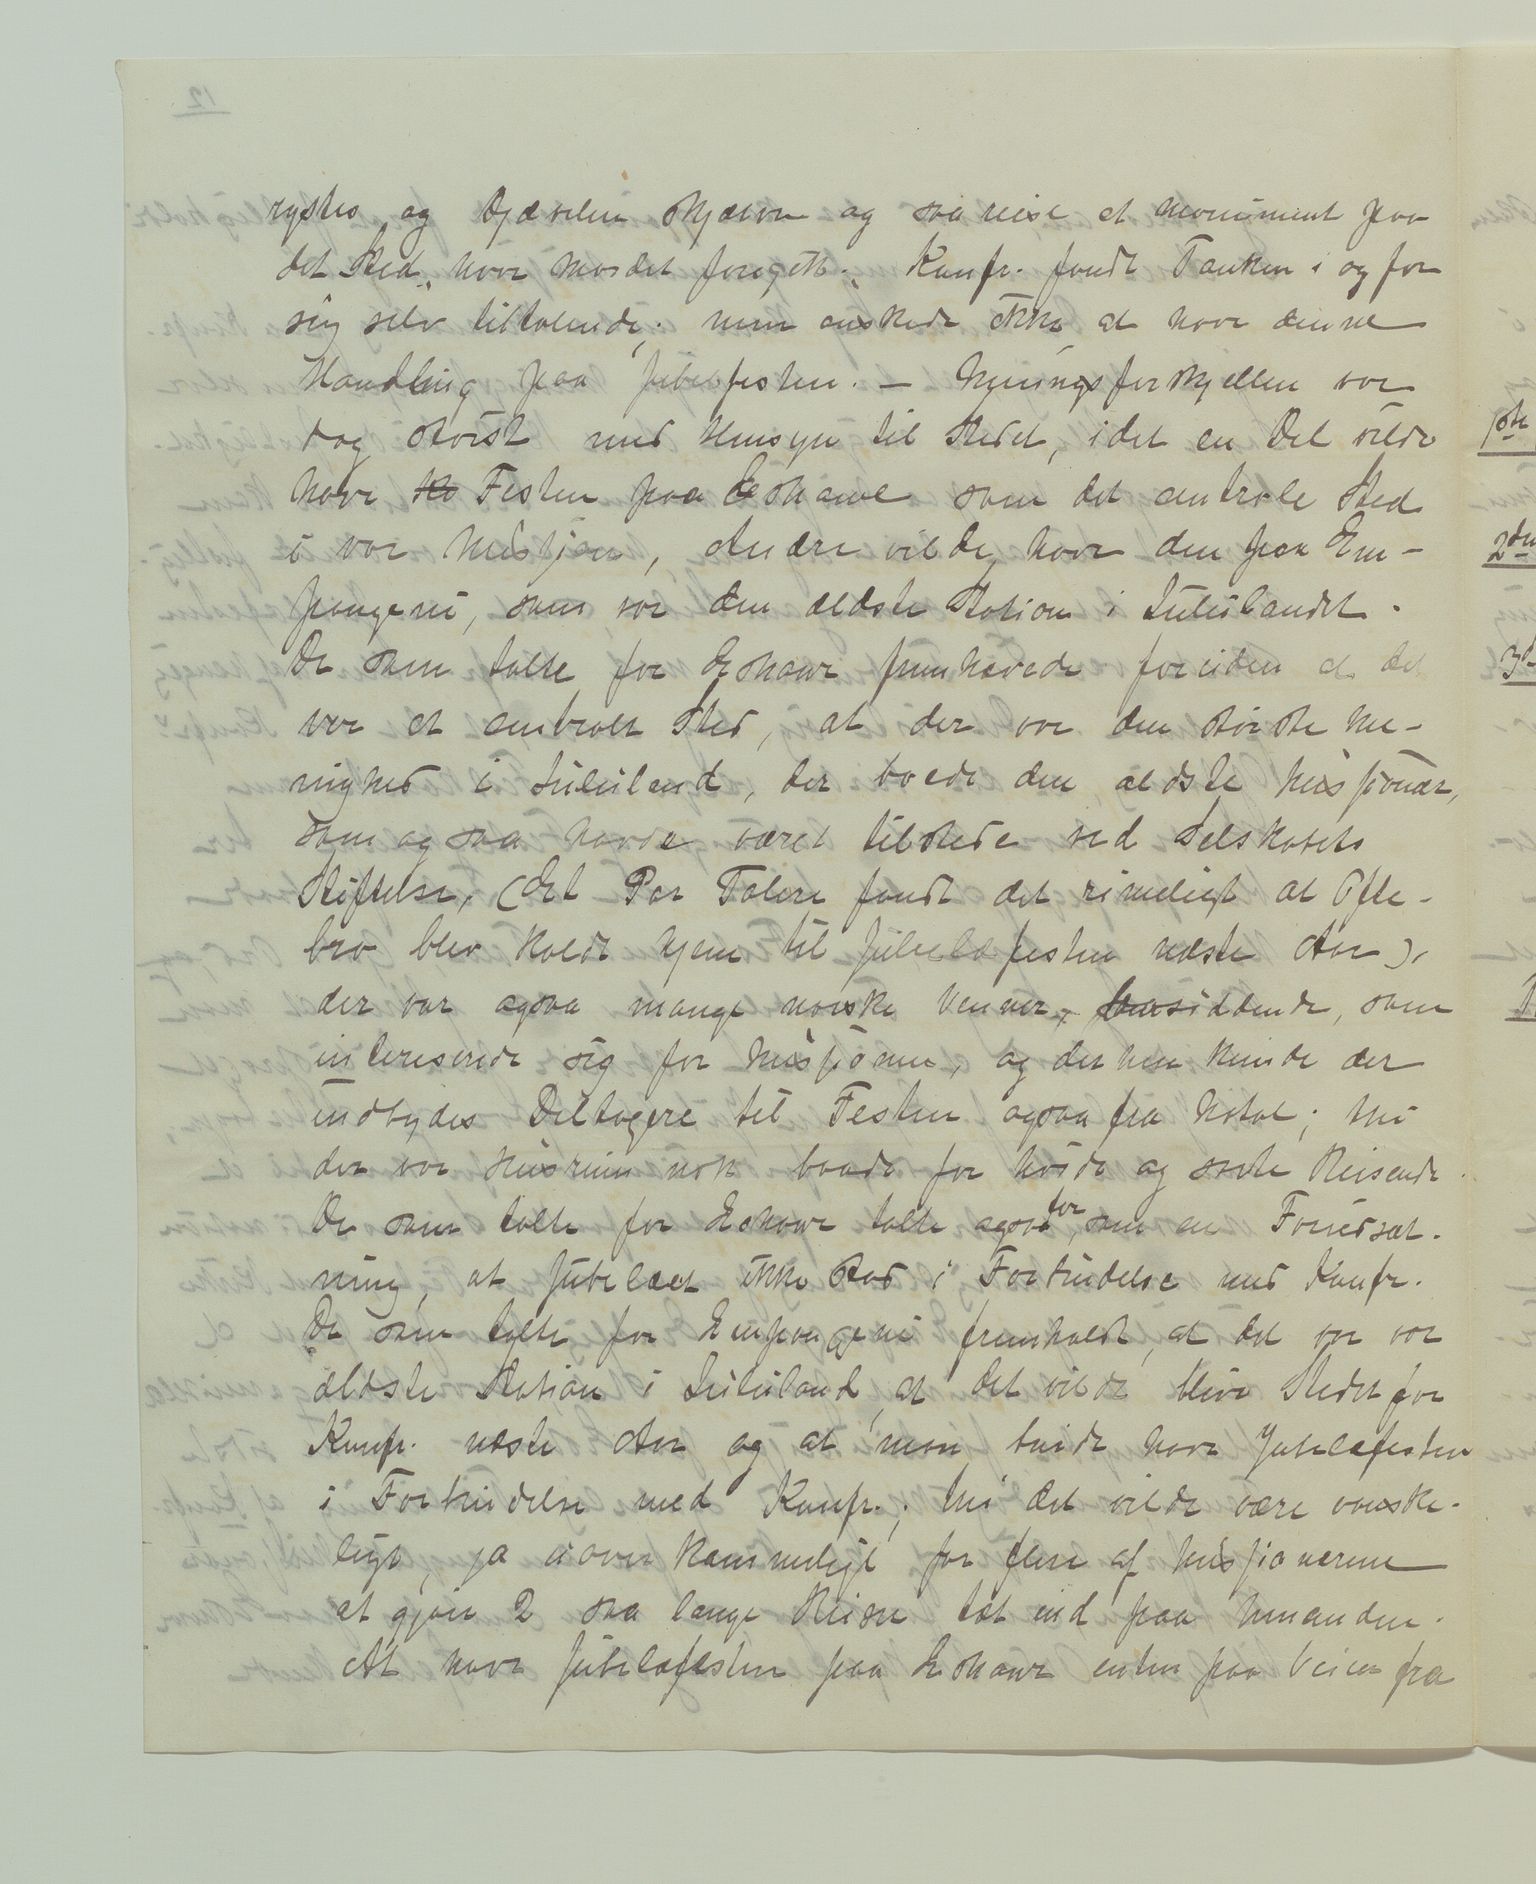 rystes og Djævelen skjælve og saa reise et monument paa
det Sted, hvor Mordet foregik. Konfr. fandt Tanken i og for
sig selv tiltalende; men ønskede ikke at have denne
Handling paa Jubelfesten. — Meningsforskjellen var
dog størst med Hensyn til Stedet, idet en Del vilde
have Festen paa Eshowe som det centrale Sted
i vor Mission, Andre vilde have den paa Em-
pangeni, som var den ældste Station i Zululandet.
De som talte for Eshowe fremhævede foruden at det
var et centralt Sted, at der var den største Me-
nighed i Zululand, der boede den ældste Missionær,
som ogsaa havde været tilstede ved Selskabets
Stiftelse, (Et Par Talere fandt det rimeligt at Ofte-
bro blev kaldt hjem til Jubelæfesten næste Aar),
der var ogsaa mange norske Venner, bosiddende, som
interesserede sig for Missionen, og derhen kunde der
indbydes Deltagere til Festen ogsaa fra Natal; thi
der var Husrum nok baade for hvide og sorte Reisende.
De som talte for Eshowe talte ogsaa for, som en Forudsæt-
ning, at Jubelæet ikke stod i Forbindelse med Konfr.
De som talte for Empangeni fremholdt, at det var vor
ældste Station i Zululand, at det vilde blive Stedet for
Konfr. næste Aar og at man burde have Jubelæfesten
i Forbindelse med Konfr.; thi det vilde være vanske-
ligt, ja uoverkommeligt for flere af Missionærerne
at gjøre 2 saa lange Reiser tæt ind paa hinanden.
At have Jubelæfesten paa Eshowe enten paa Veien fra
12
1ste
2den
3d